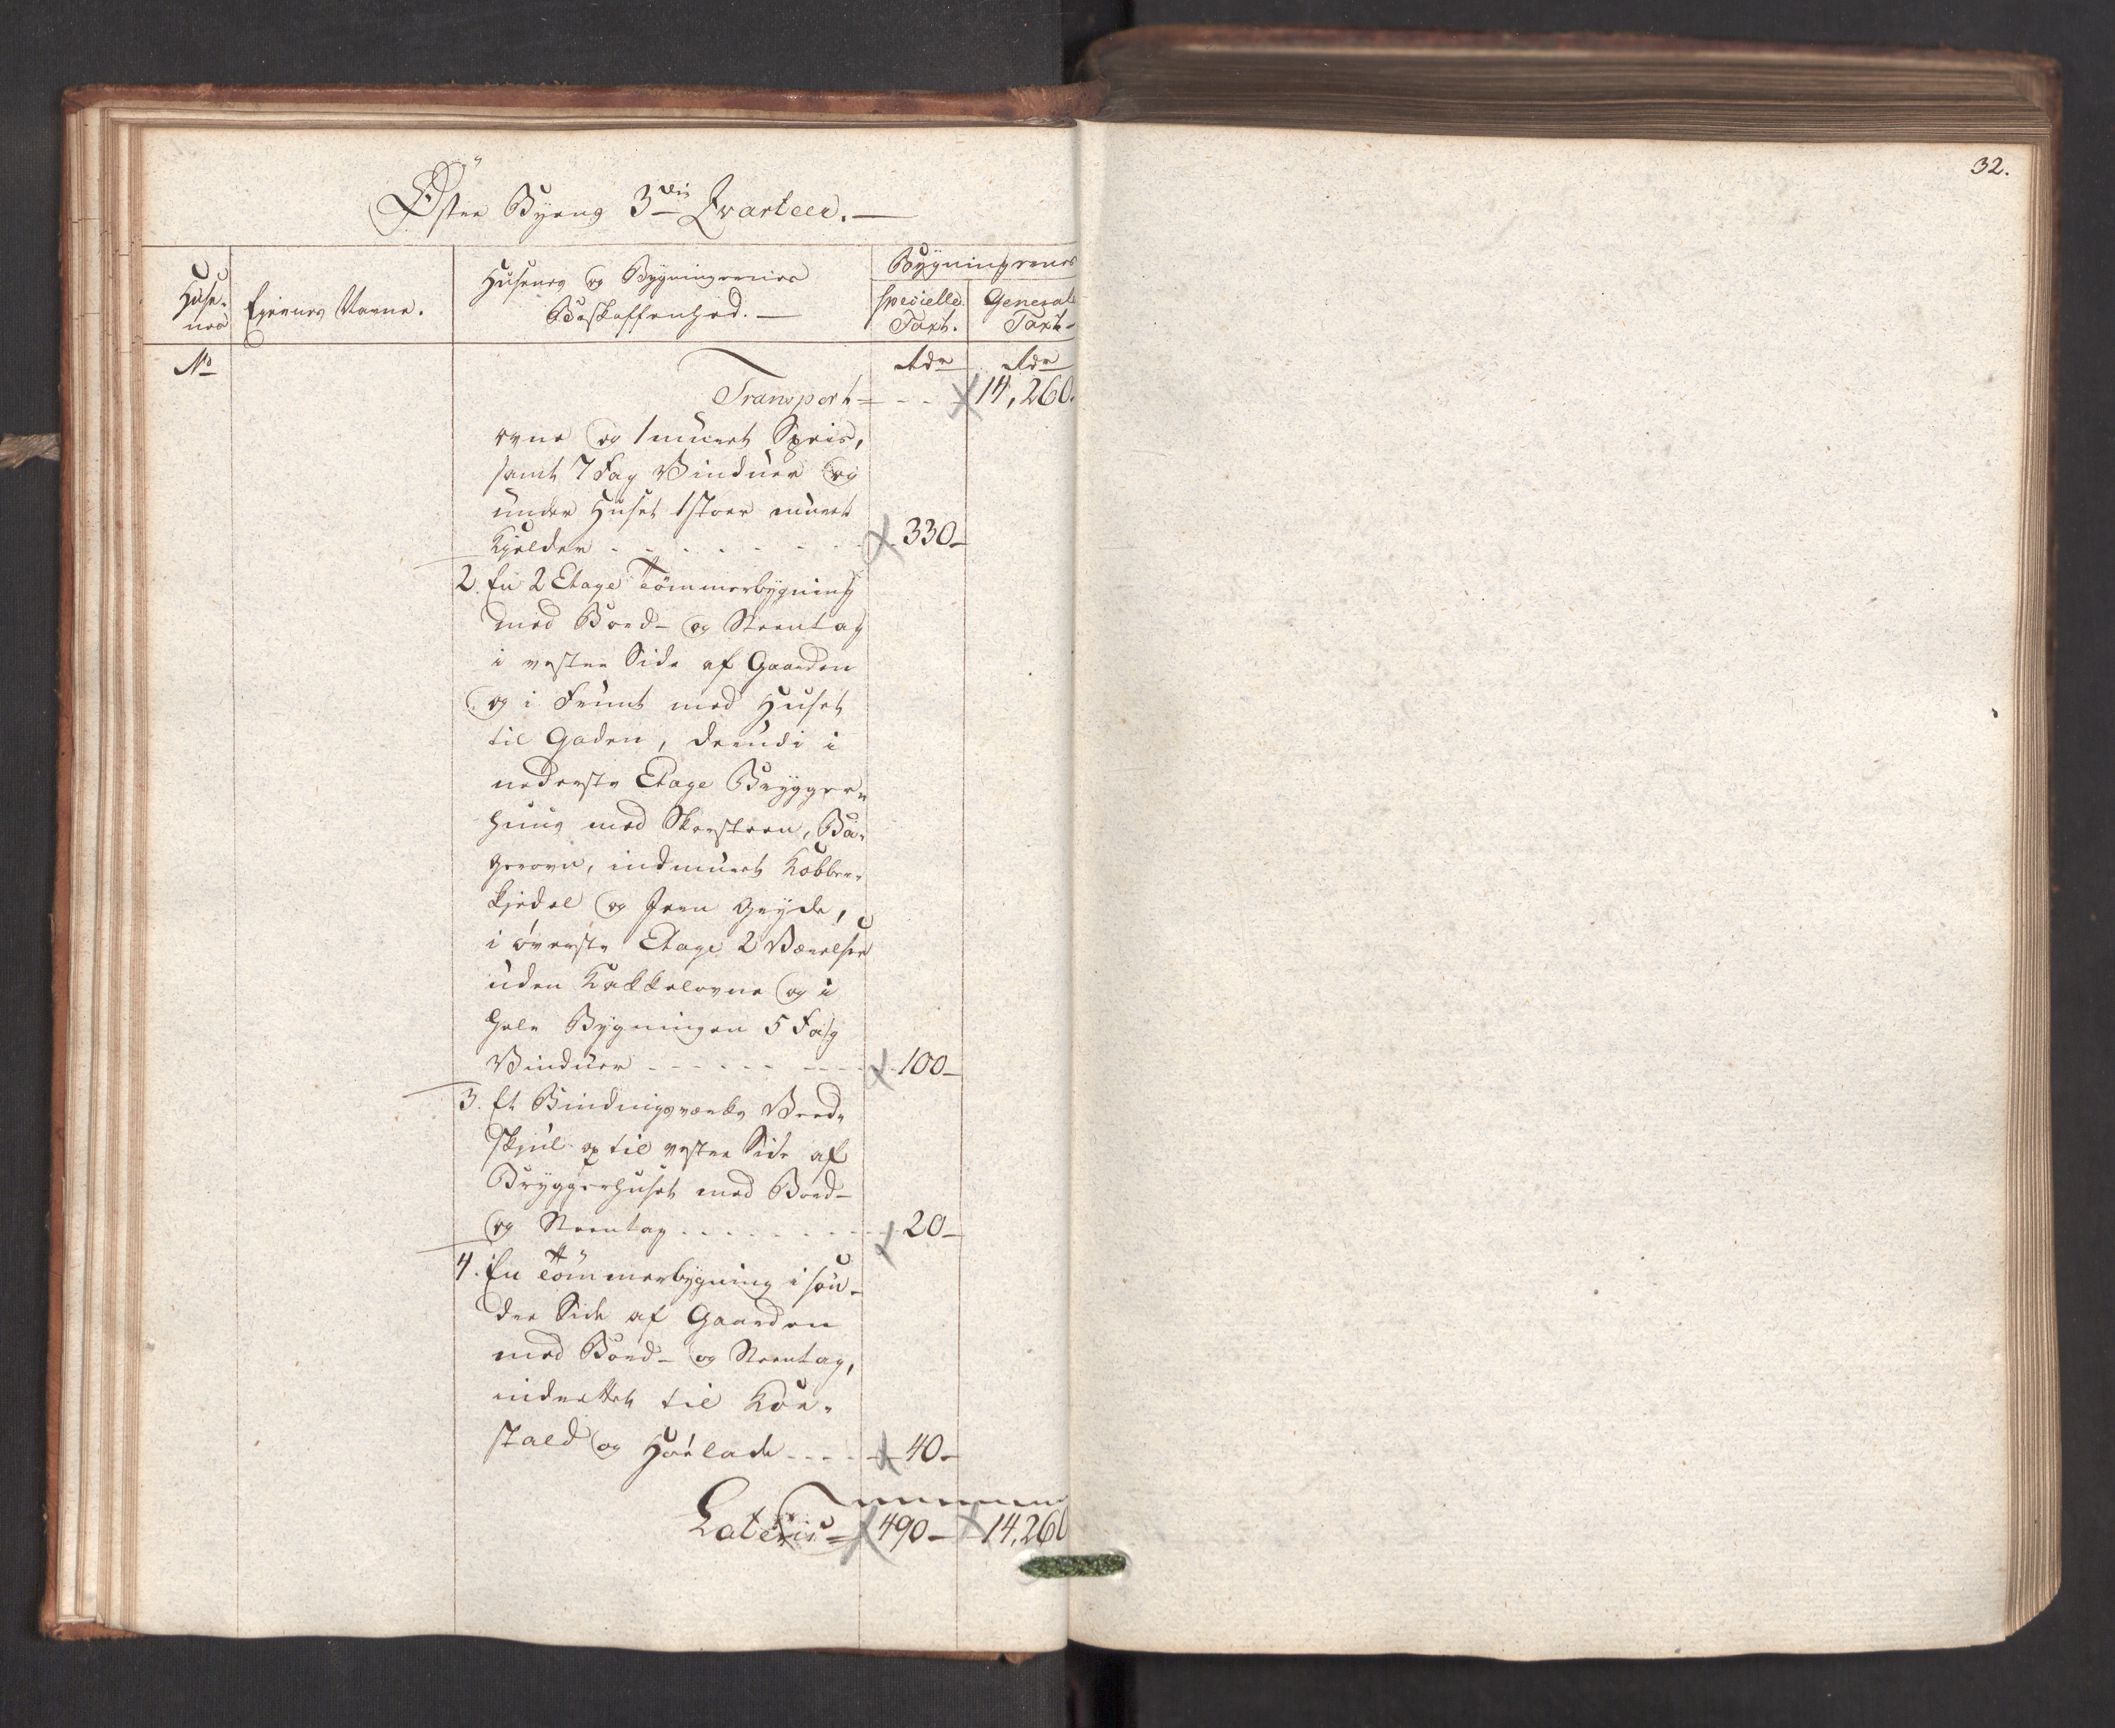 32.
Øster Byens 3die Qvarteer.
Bygningernes
Huse- Ejernes Navne. Husenes og Bygningernes specielle General
nes Beskaffenhed. Taxt. Taxt
No Rdr Rdr
Transport = 14,260.
ovne og 1 muret Spiis,
samt 7 Fag Vinduer og
under Huset 1 stoer muret
Kjelder 330
2. En 2 Etage Tömmerbygning
med Bord- og Steentag
i vester Side af Gaarden
og i Frunt med Huset
til Gaden, derudi i
nederste Etage Brygger-
huus med Skorsteen, Ba-
gerovn, indmuret Kobber-
kjedel og Jern Gryde,
i överste Etage 2 Værelser
uden Kakkelovne og i
hele Bygningen 5 Fag
Vinduer 100
3. Et Bindingsværks Veed-
skjul op til vester Side af
Bryggerhuset med Bord-
og Steentag 20
4. En Tömmerbygning i sön-
dre Side af Gaarden
med Bord- og Steentag,
indrettet til Koe-
stald og Höelade 40
Lateris = 490 14,260